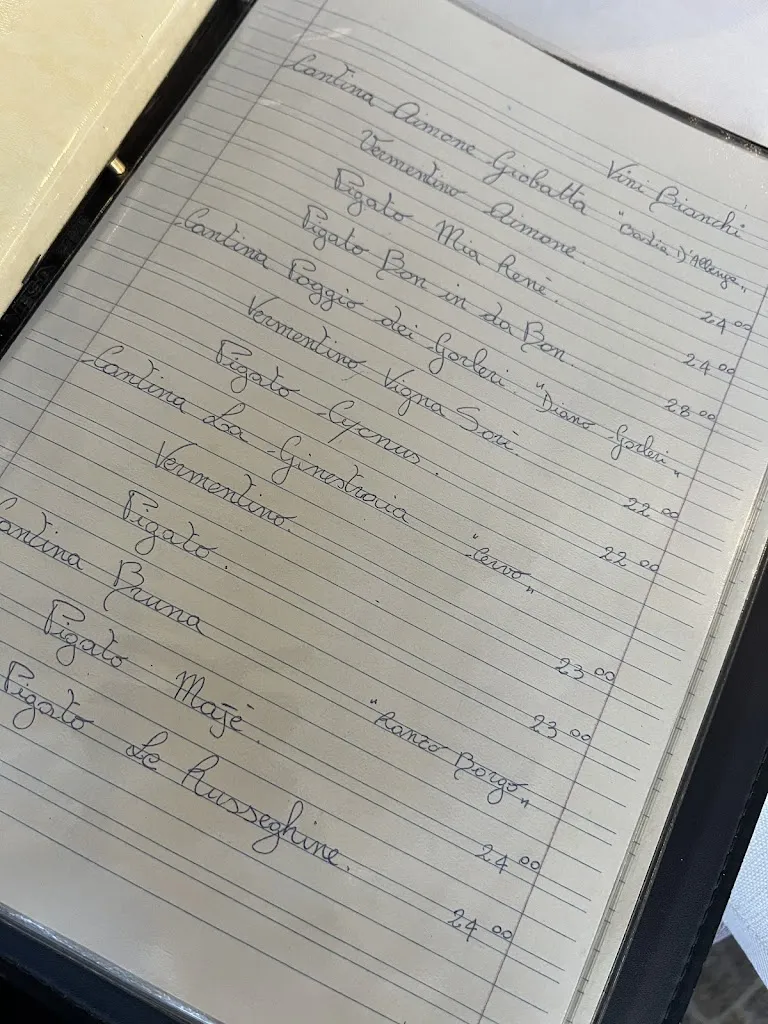 Vini Bianchi
Cantina Aimone Giobatta "Castia D'Albenga"
Vermentino Aimone. 24 00
Pigato Mia Renè. 24 00
Pigato Bon in da Bon. 28 00
Cantina Poggio dei Gorleri. "Diano Gorleri"
Vermentino, Vigna Sori. 22 00
Pigato Cycnus. 22 00
Cantina La Ginestraia "Cervo"
Vermentino. 23 00
Pigato. 23 00
Cantina Bruna "Ranzo Borgo"
Pigato Majè. 24 00
Pigato Le Russeghine. 24 00